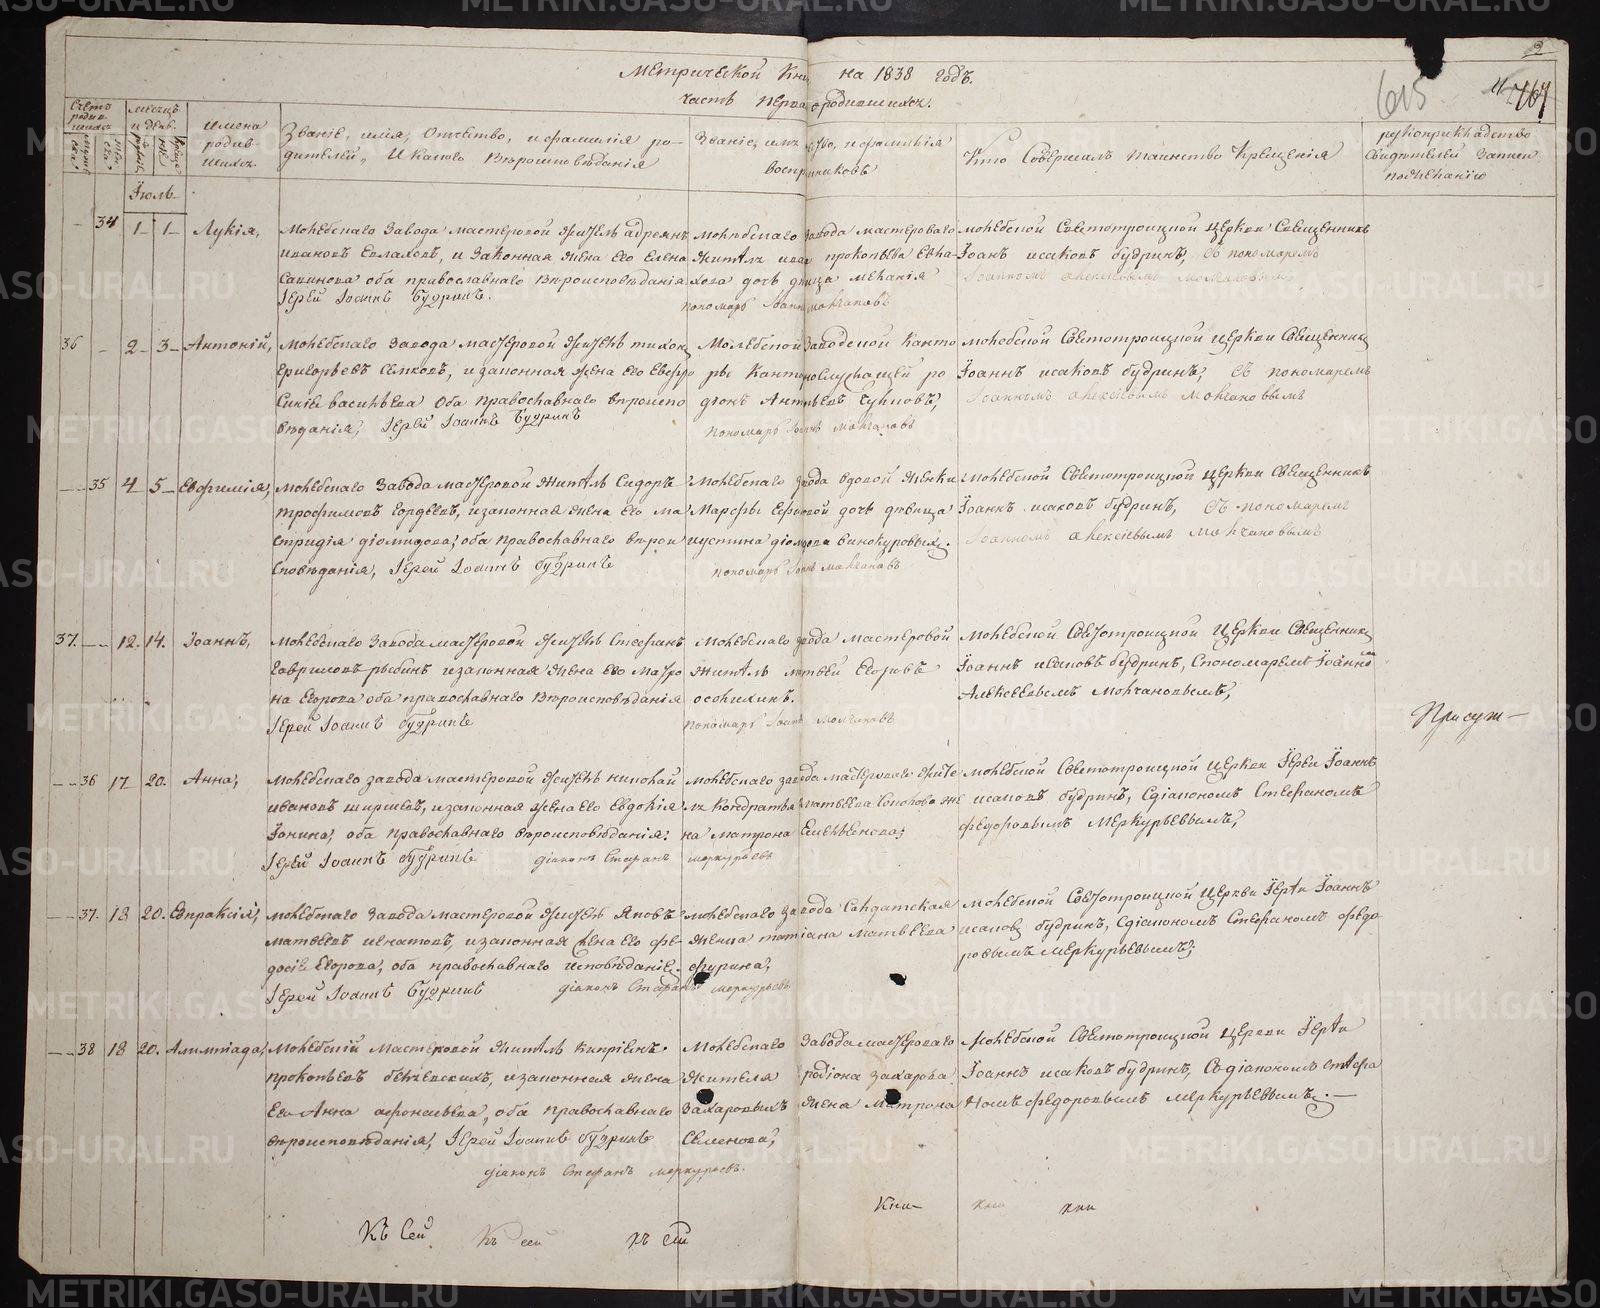 2
Метрической Кни на 1838 годъ.
615
767
часть перва о родившихся.
Счетъ родившихся
Мѣсяцъ и день.
Имена родившихся.
Званіе, имя, Отчество, и фамилія родителей, и какого Вѣроисповѣданія
Званіе, имя ство, и фамилія воспріемниковъ
Кто Совершалъ таинство Крещенія
рукоприкладство Свидѣтелей записи по желанію
Іюль
34 1 1 Лукія,
Молебскаго Завода мастеровой житель адреянъ
ивановъ Евлаховъ, и Законная жена Его Елена
Савинова оба православнаго Вѣроисповѣданія
Іерей Іоаннъ Будринъ.
Молебскаго Завода мастероваго
жителя ива прокопьева Евла-
хова дочь дѣвица меланія
пономарь Іоаннъ молчановъ
молебской Святотроицкой церкви Священникъ
Іоаннъ исаковъ будринъ, съ пономаремъ
Іоанномъ алексѣевымъ молчановымъ
36 2 3 Антоній,
Молебскаго завода мастеровой житель тихон
Григорьевъ, и законная жена Его Евфро
синія васильева Оба православнаго вѣроиспо
вѣданія, Іерей Іоаннъ Будринъ
Молебской Заводской Канто
ры Канторослужащей ро
діонъ Антипьевъ
пономарь Іоаннъ молчановъ
молебской Святотроицкой церкви Священник
Іоаннъ исаковъ будринъ, съ пономаремъ
Іоанномъ алексѣевымъ молчановымъ
35 4 5 Евфимія,
Молебскаго Завода мастеровой житель Сидоръ
трофимовъ Гордѣевъ, и законная жена Его ма
стридія діомидова, оба православнаго вѣрои
сповѣданія, Іерей Іоаннъ будринъ
Молебскаго завода вдовой женки
Марфы дочь дѣвица
иустина винокуровыхъ.
пономарь Іоаннъ молчановъ
Молебской Святотроицкой церкви Священникъ
Іоаннъ исаковъ будринъ, съ пономаремъ
Іоанномъ алексѣевымъ молчановымъ
37. 12. 14. Іоаннъ,
Молебскаго Завода мастеровой житель Стефанъ
Гавриловъ рыбинъ и законная жена Его матро
на Егорова оба православнаго Вѣроисповѣданія
Іерей Іоаннъ будринъ
Молебскаго завода мастеровой
житель матвѣй Егоровъ
осолихинъ.
пономарь Іоаннъ молчановъ
Молебской Святотроицкой Церкви Священник
Іоаннъ исаковъ будринъ, Спономаремъ Іоанно
Алексѣевымъ Молчановымъ,
Присуж-
36 17 20. Анна,
Молебскаго завода мастеровой житель николай
ивановъ ширшевъ, и законная жена Его Евдокія
Іонина, оба православнаго вѣроисповѣданія.
Іерей Іоаннъ будринъ діаконъ Стефанъ меркурьевъ
молебскаго завода мастероваго жите
ля Кондратья матвѣева Конохова же
на матрона Емельянова,
молебской Святотроицкой церкви Іерей Іоаннъ
исаковъ будринъ, Сдіакономъ Стефаномъ
федоровымъ меркурьевымъ,
37. 18 20. Евпраксія,
молебскаго Завода мастеровой житель яковъ
матвѣевъ игнатовъ, и законная жена его фе-
досія Егорова, оба православнаго исповѣданіе.
Іерей Іоаннъ будринъ діаконъ Стефанъ меркурьевъ
молебскаго завода Салдатская
женка татіана матвѣева
фурина,
молебской Святотроицкой Церкви Іерей Іоаннъ
исаковъ будринъ, Сдіакономъ Стефаномъ федо-
ровымъ меркурьевымъ,
38 18 20. Алимпіада,
Молебскій мастеровой житель Кипріянъ
прокопьевъ, и законная жена
Его Анна афонасьева, оба православнаго
вѣроисповѣданія, Іерей Іоаннъ будринъ
діаконъ Стефанъ меркурьевъ.
Молебскаго завода мастероваго
жителя родіона захарова
захаровыхъ жена матрона
Семенова,
молебской Святотроицкой церкви Іерей
Іоаннъ исаковъ будринъ, Съдіакономъ Стефа
номъ федоровымъ меркурьевымъ.
Кни- кни кни
Къ Сей Къ сей къ сей